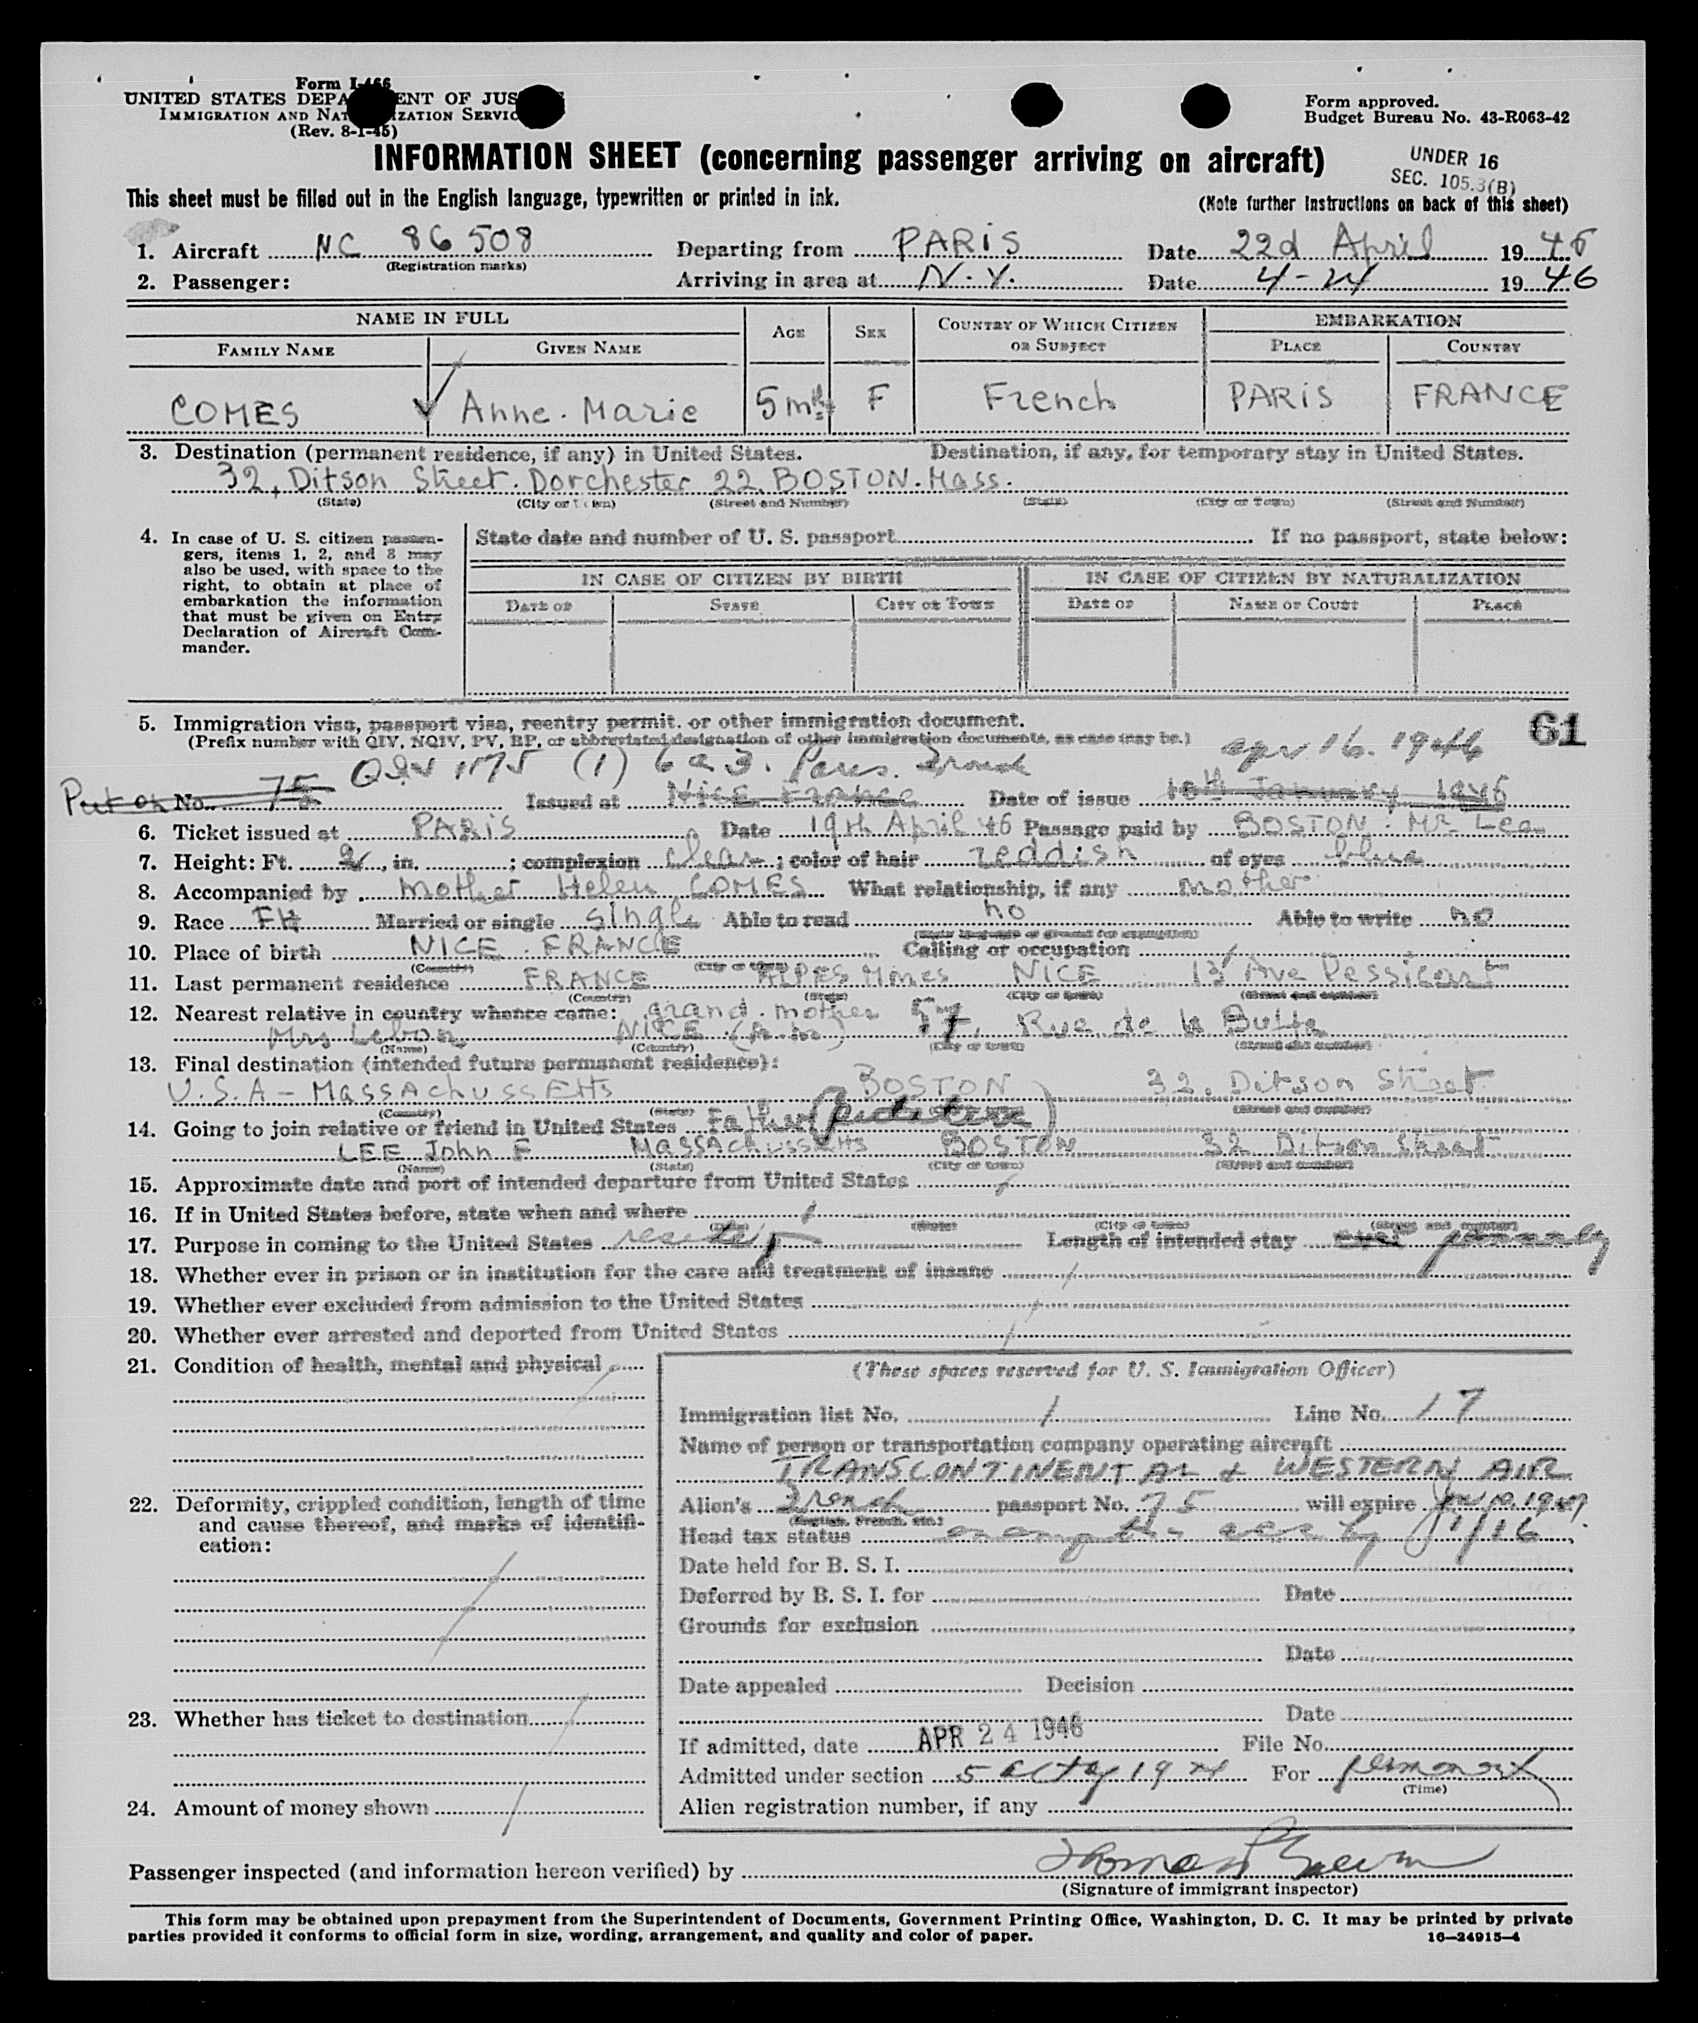 Form I-466
UNITED STATES DEPA ENT OF JUS
IMMIGRATION AND NAT IZATION SERVIC
(Rev. 8-1-45)
Form approved.
Budget Bureau No. 43-R063-42
INFORMATION SHEET (concerning passenger arriving on aircraft)
UNDER 16
SEC. 105.3(B)
This sheet must be filled out in the English language, typewritten or printed in ink.
(Note further instructions on back of this sheet)
1. Aircraft NC 86 508 Departing from PARiS Date 22d April 1946
(Registration marks)
2. Passenger: Arriving in area at N.Y. Date 4-24 1946
NAME IN FULL AGE SEX COUNTRY OF WHICH CITIZEN OR SUBJECT EMBARKATION
FAMILY NAME GIVEN NAME PLACE COUNTRY
COMES Anne.Marie 5 mths F French PARiS FRANCE
3. Destination (permanent residence, if any) in United States. Destination, if any, for temporary stay in United States.
32, Ditson Street. Dorchester 22. BOSTON. Mass.
(State) (City or Town) (Street and Number) (State) (City or Town) (Street and Number)
4. In case of U. S. citizen passengers, items 1, 2, and 3 may also be used, with space to the right, to obtain at place of embarkation the information that must be given on Entry Declaration of Aircraft Commander.
State date and number of U. S. passport If no passport, state below:
IN CASE OF CITIZEN BY BIRTH IN CASE OF CITIZEN BY NATURALIZATION
DATE OF STATE CITY OR TOWN DATE OF NAME OF COURT PLACE
5. Immigration visa, passport visa, reentry permit, or other immigration document.
61
(Prefix number with QIV, NQIV, PV, RP, or abbreviated designation of other immigration documents, as case may be.)
QIV 1175 (1) 6 a 3. Paris. France apr 16. 1946
No. 75 Issued at NiCE FRANCE Date of issue 10th January 1946
6. Ticket issued at PARiS Date 19th April 46 Passage paid by BOSTON. Mr Lee
7. Height: Ft. 2, in. ; complexion clear ; color of hair reddish of eyes blue
8. Accompanied by mother Helen COMES What relationship, if any mother
9. Race FH Married or single single Able to read no Able to write no
(State language or ground for exemption)
10. Place of birth NICE. FRANCE Calling or occupation
(Country) (City or town)
11. Last permanent residence FRANCE ALPES Mmes NICE 13 Ave Pessicart
(Country) (State) (City or town) (Street and number)
12. Nearest relative in country whence came: grand.mother 57, Rue de la Butte
Mrs Lebon NICE (A.M)
(Name) (Country) (City or town) (Street and number)
13. Final destination (intended future permanent residence):
U.S.A - MASSAChUSSETTs BOSTON 32, Ditson Street
(Country) (State) (Street and number)
14. Going to join relative or friend in United States Father (putative)
LEE John F MASSAChUSSETTs BOSTON 32 Ditson Street
(Name) (State) (City or town) (Street and number)
15. Approximate date and port of intended departure from United States
16. If in United States before, state when and where
(Date) (State) (City or town) (Street and number)
17. Purpose in coming to the United States reside Length of intended stay
18. Whether ever in prison or in institution for the care and treatment of insane
19. Whether ever excluded from admission to the United States
20. Whether ever arrested and deported from United States
21. Condition of health, mental and physical
(These spaces reserved for U. S. Immigration Officer)
Immigration list No. 1 Line No. 17
Name of person or transportation company operating aircraft
TRANSCONTINENTAL & WESTERN AIR
22. Deformity, crippled condition, length of time and cause thereof, and marks of identification:
Alien's French passport No. 75 will expire Jan 10 1947
(English, French, etc.)
Head tax status
Date held for B. S. I.
Deferred by B. S. I. for Date
Grounds for exclusion
Date
Date appealed Decision
23. Whether has ticket to destination
Date
If admitted, date APR 24 1946 File No.
Admitted under section 5 act of 1924 For permanent
(Time)
24. Amount of money shown
Alien registration number, if any
Passenger inspected (and information hereon verified) by
(Signature of immigrant inspector)
This form may be obtained upon prepayment from the Superintendent of Documents, Government Printing Office, Washington, D. C. It may be printed by private
parties provided it conforms to official form in size, wording, arrangement, and quality and color of paper.
16—24915-4